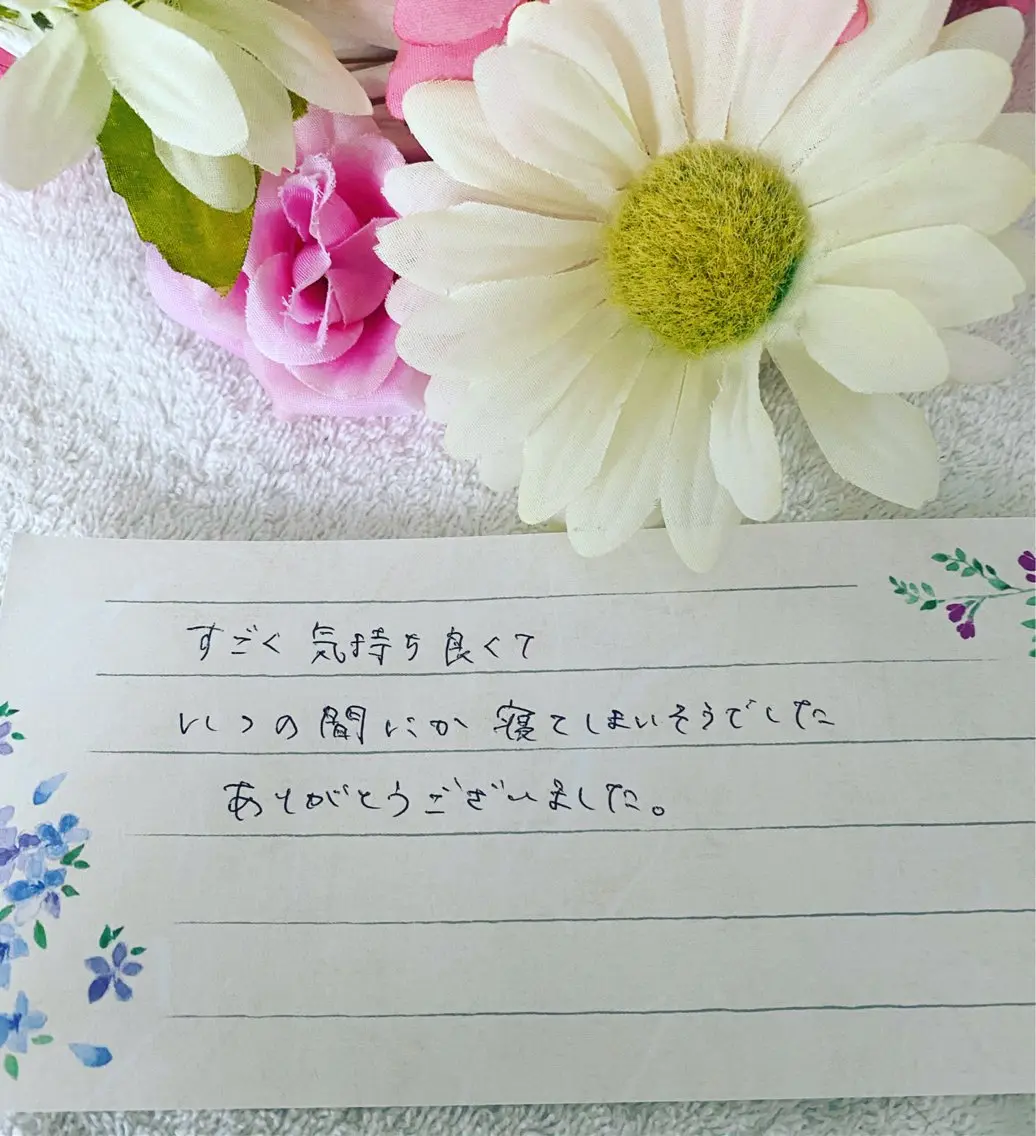 すごく気持ち良くて
いつの間にか寝てしまいそうでした
ありがとうございました。